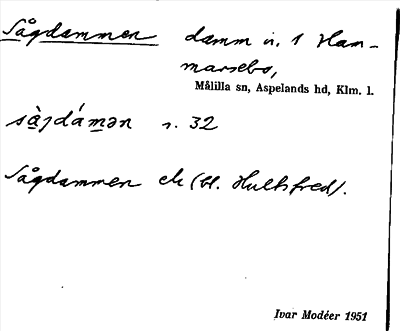 Sågdammen damm n. 1 Ham-
marsebo,
Målilla sn, Aspelands hd, Klm. l.
sàgdámən s. 32
Sågdammen ek (bl. Hultsfred).
Ivar Modéer 1951